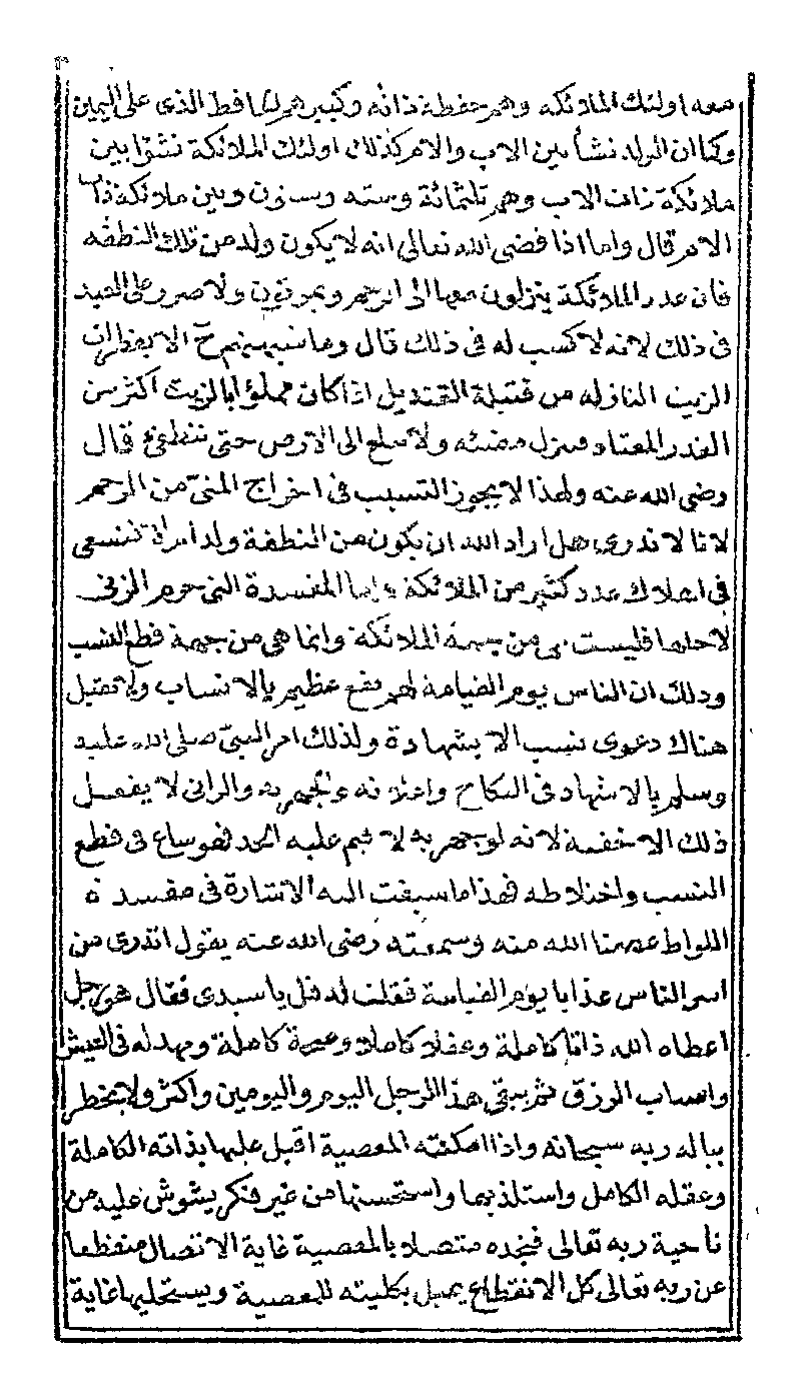 معه اولئك الملائكة وهم حفظة ذاته وكبيرهم الحافظ الذى على اليمين
وكما ان الولد نشأ بين الاب والام كذلك اولئك الملائكة نشؤا بين
ملائكة ذات الاب وهم ثلثمائة وستة وستون وبين ملائكة ذات
الام قال واما اذا قضى الله تعالى انه لا يكون ولد من تلك النطفة
فان عدد الملائكة ينزلون معها الى الرحم ويموتون ولا ضرر على العبد
فى ذلك لانه لا كسب له فى ذلك قال وما شبههم
الزيت النازلة من فتيلة القنديل اذا كان مملوًا بالزيت اكثر من
القدر المعتاد فتنزل مضيئه ولا تبلغ الى الارض حتى تنطفئ قال
رضى الله عنه ولهذا لا يجوز التسبب فى اخراج المنىّ من الرحم
لانا لا ندرى هل اراد الله ان يكون من النطفة ولد ام لا فنسعى
فى اهلاك عدد كثير من الملائكة واما المفسدة التى حرم الزنى
لاجلها فليست هى من جهة الملائكة وانما هى من جهة قطع النسب
وذلك ان الناس يوم القيامة لهم نفع عظيم بالانساب ولا تقبل
هناك دعوى نسب الا بشهادة ولذلك امر النبىّ صلى الله عليه
وسلم بالاشهاد فى النكاح واعلانه والجهر به والزانى لا يفعل
ذلك الا خفية لانه لو جهر به لاقيم عليه الحد فهو ساع فى قطع
النسب واختلاطه فهذا ما سبقت اليه الاشارة فى مفسدة
اللواط عصمنا الله منه وسمعته رضى الله عنه يقول اتدرى من
اشر الناس عذابا يوم القيامة فقلت له قل يا سيدى فقال هو رجل
اعطاه الله ذاتا كاملة وعقلا كاملا وصحة كاملة ومهد له فى العيش
واسباب الرزق ثم يبقى هذا الرجل اليوم واليومين واكثر ولا يخطر
بباله ربه سبحانه واذا امكنته المعصية اقبل عليها بذاته الكاملة
وعقله الكامل واستلذ بها واستحسنها من غير فكر يشوش عليه من
ناحية ربه تعالى فتجده متصلا بالمعصية غاية الاتصال منقطعا
عن ربه تعالى كل الانقطاع يميل بكليته للمعصية ويستحليها غاية